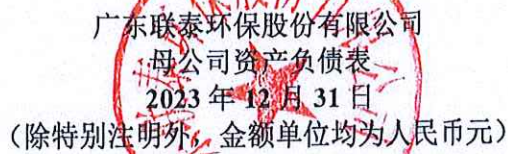 广东联泰环保股份有限公司
母公司资产负债表
2023 年 12 月 31 日
（除特别注明外，金额单位均为人民币元）